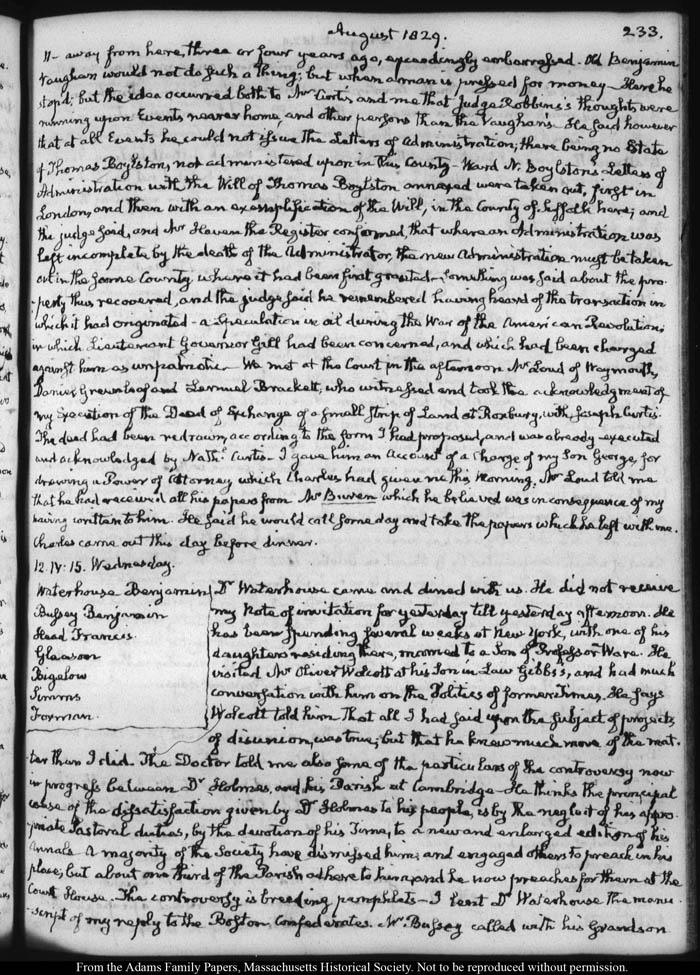 August 1829.
233.
11- away from here, three or four years ago, exceedingly embarrassed. Old Benjamin
Vaughan would not do such a thing; but when a man is pressed for money- Here he
stop'd; but the idea occurred both to Mr Curtis and me that Judge Robbins's thoughts were
running upon Events nearer home, and other persons than the Vaughan's. He said however
that at all Events he could not issue the Letters of Administration; there being no Estate
of Thomas Boylston, not administered upon in this County- Ward N. Boylston's Letters of
Administration with the Will of Thomas Boylston annexed were taken out, first in
London, and then with an exemplification of the Will, in the County of Suffolk here; and
the judge said, and Mr Haven the Register confirmed, that where an Administration was
left incomplete by the death of the Administrator, the new Administration must be taken
out in the same County where it had been first granted- Something was said about the pro-
perty thus recovered, and the judge said he remembered having heard of the transaction in
which it had originated- a Speculation in oil during the War of the American Revolution;
in which Lieutenant Governor Gill had been concerned, and which had been charged
against him as unpatriotic- We met at the Court in the afternoon Mr Loud of Weymouth,
Daniel Greenleaf and Lemuel Brackett, who witnessed and took the acknowledgment of
my Execution of the Deed of Exchange of a small strip of Land at Roxbury, with Joseph Curtis.
The deed had been redrawn, according to the form I had proposed, and was already executed
and acknowledged by Nathl. Curtis- I gave him an Account of a Charge of my Son George, for
drawing a Power of Attorney which Charles had given me this Morning. Mr Loud told me
that he had received all his papers from Mr Bowen which he believed was in consequence of my
having written to him. He said he would call some day and take the papers which he left with me.
Charles came out this day before dinner.
12. IV: 15. Wednesday.
Waterhouse Benjamin
Bussey Benjamin
Head Francis
Gleason
Bigalow
Simms
Foxman.
Dr Waterhouse came and dined with us. He did not receive
my Note of invitation for yesterday till yesterday afternoon. He
has been spending several weeks at New York, with one of his
daughters residing there, married to a Son of Professor Ware. He
visited Mr Oliver Wolcott at his Son in Law Gibbs's, and had much
conversation with him on the Politics of former Times. He says
Wolcott told him that all I had said upon the subject of projects
of disunion, was true; but that he knew much more of the mat-
ter than I did. The Doctor told me also some of the particulars of the controversy now
in progress between Dr Holmes, and his Parish at Cambridge- He thinks the principal
cause of the dissatisfaction given by Dr Holmes to his people, is by the neglect of his appro-
priate Pastoral duties, by the devotion of his Time, to a new and enlarged edition of his
Annals. A majority of the Society have dismissed him; and engaged others to preach in his
place, but about one third of the Parish adhere to him, and he now preaches for them at the
Court House. The controversy is breeding pamphlets- I lent Dr Waterhouse the manu-
-script of my reply to the Boston Confederates. Mr Bussey called with his Grandson
From the Adams Family Papers, Massachusetts Historical Society. Not to be reproduced without permission.